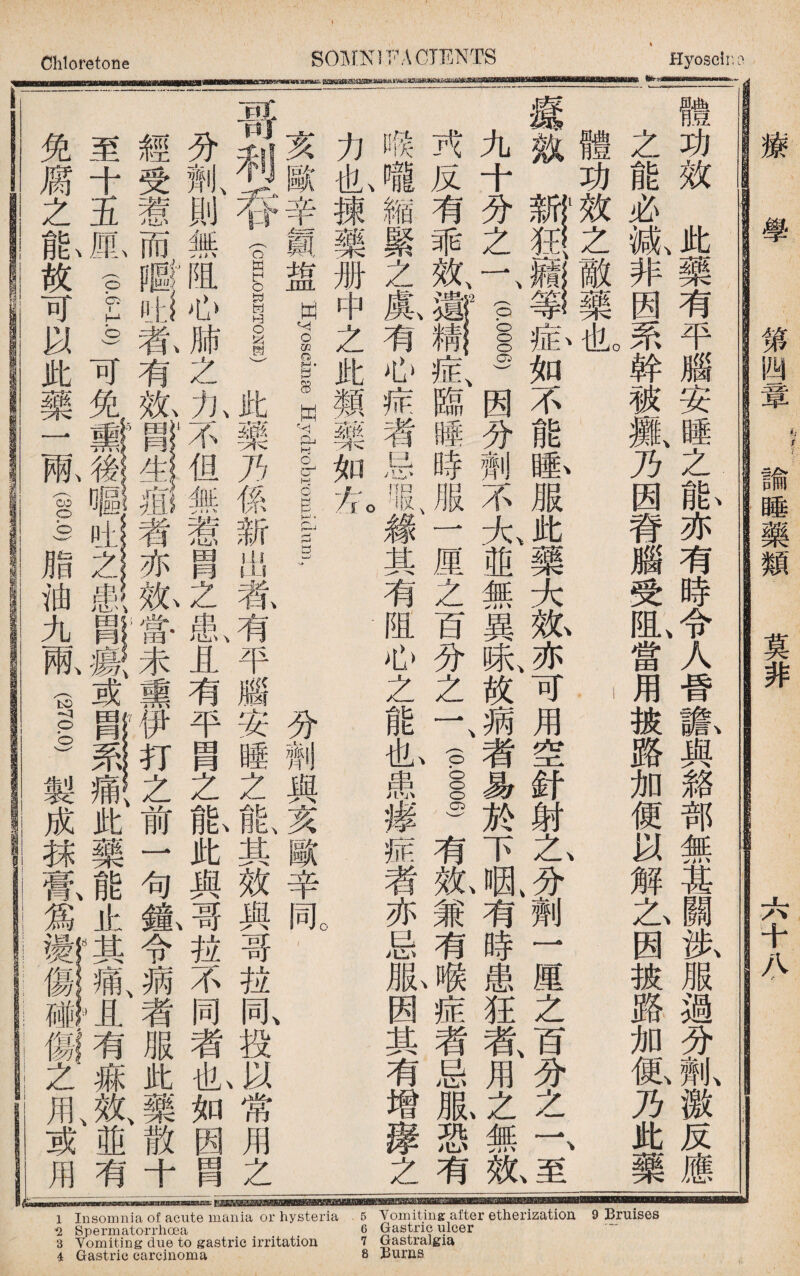 Chloretone SOMNIFACIENTS Hyoscine
療學 第四章 論睡藥類 莫非 六十八
體功效 此藥有平腦安睡之能、亦有時令人昏譫、與絡部無甚關涉、服過分劑、激反應
之能必減、非因系幹被癱、乃因脊腦受阻、當用披路加便以解之、因披路加便、乃此藥
體功效之敵藥也。
療效 新狂癪等症、如不能睡、服此藥大效、亦可用空針射之、分劑一厘之百分之一、至
九十分之一、(0.0006) 因分劑不大、並無異味、故病者易於下咽、有時患狂者、用之無效、
或反有乖效、遺精症、臨睡時服一厘之百分之一、(0.0006) 有效、兼有喉症者忌服、恐有
喉嚨縮緊之虞、有心症者忌服、緣其有阻心之能也、患痵症者亦忌服、因其有增痵之
力也、揀藥册中之此類藥如左。
亥歐辛䴅盐 Hyoscinae Hydrobromidum, 分劑與亥歐辛同。
哥利吞 (CHLORETONE) 此藥乃係新出者、有平腦安睡之能、其效與哥拉同、投以常用之
分劑、則無阻心肺之力、不但無惹胃之患、且有平胃之能、此與哥拉不同者也、如因胃
經受惹而嘔吐者、有效、胃生疽者亦效、當未熏伊打之前一句鐘、令病者服此藥散十
至十五厘、(0.6-1.0) 可免熏後嘔吐之患、胃瘍、或胃系痛、此藥能止其痛、且有痳效、並有
免腐之能、故可以此藥一兩、(30.0) 脂油九兩、(270.0) 製成抹膏、爲燙傷碰傷之用、或用
1 Insomnia of acute mania or hysteria
2 Spermatorrhœa
3 Vomiting due to gastric irritation
4 Gastric carcinoma
5 Vomiting after etherization
6 Gastric ulcer
7 Gastralgia
8 Burns
9 Bruises